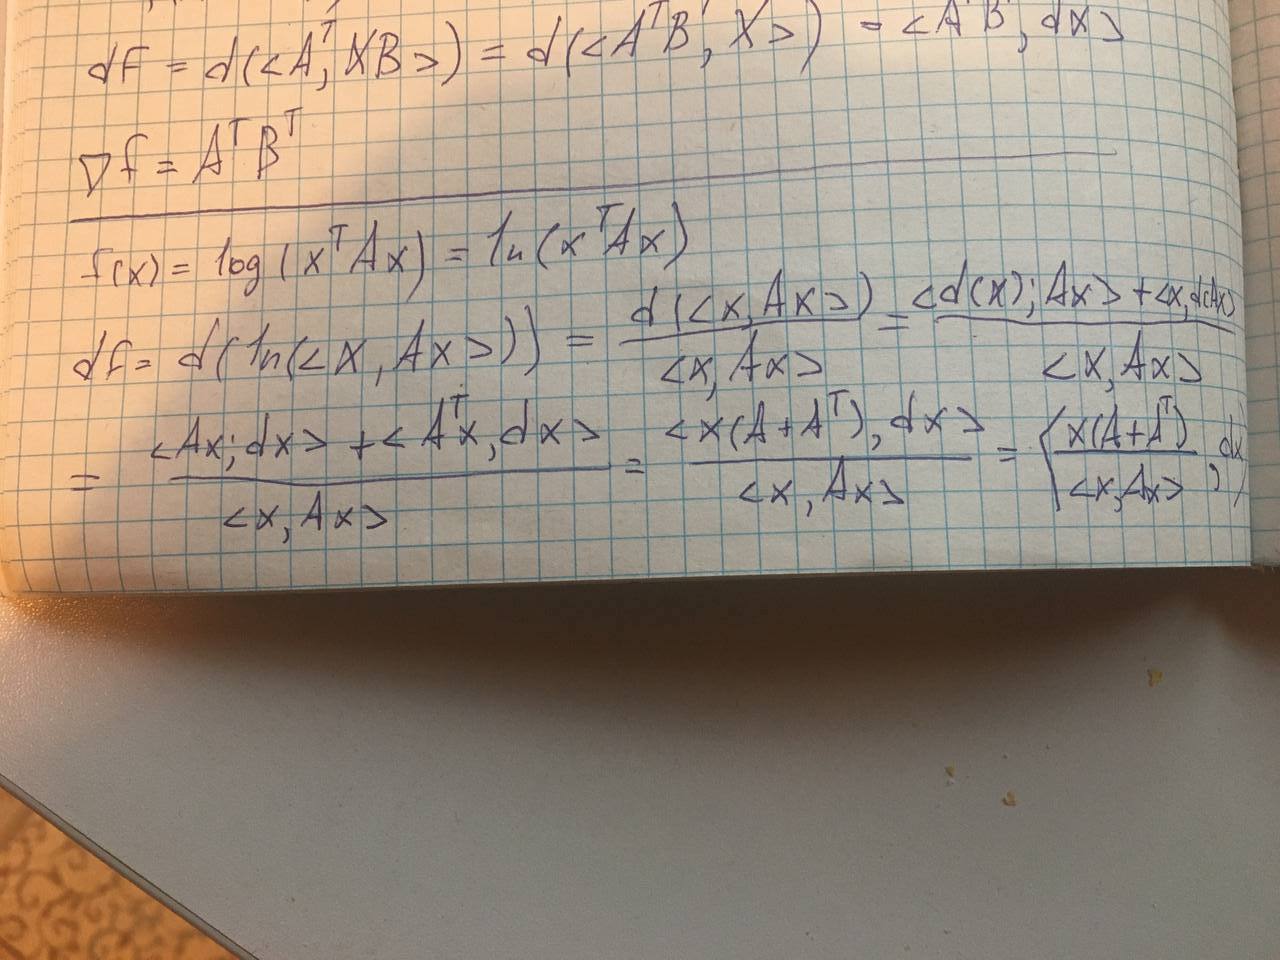 df = d(<Aᵀ, XB>) = d(<AᵀBᵀ, X>) = <AᵀBᵀ, dx>
∇f = AᵀBᵀ
f(x) = log(xᵀAx) = ln(xᵀAx)
df = d(ln(<x, Ax>)) = d(<x, Ax>) / <x, Ax> = <d(x); Ax> + <x, d(Ax)> / <x, Ax>
= <Ax; dx> + <Aᵀx, dx> / <x, Ax> = <x(A+Aᵀ), dx> / <x, Ax> = ⟨x(A+Aᵀ) / <x, Ax>, dx⟩